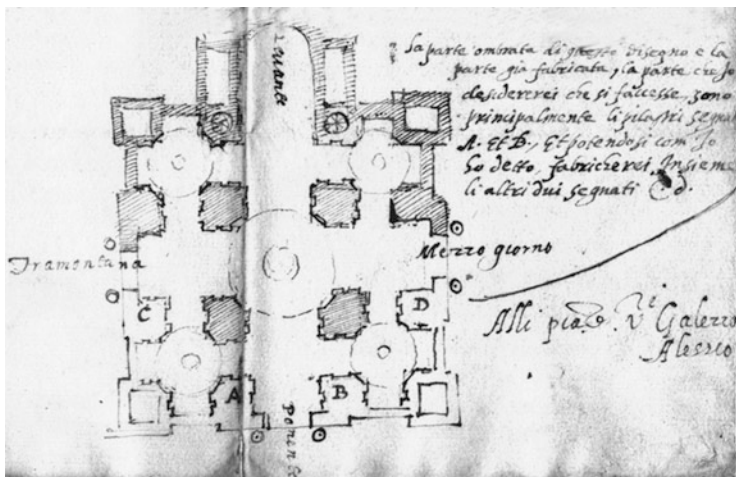 Levante
la parte ombrata di questo disegno e la
parte gia fabricata, la parte che Jo
desidererei che si facesse, sono
principalmente li pilastri segnati
A. et B., Et potendosi com Jo
ho detto, fabricherei Insieme
li altri dui segnati C. d.
Tramontana
Mezzo giorno
C
D
Alli
Galezzo
Alessio
A
B
Ponente